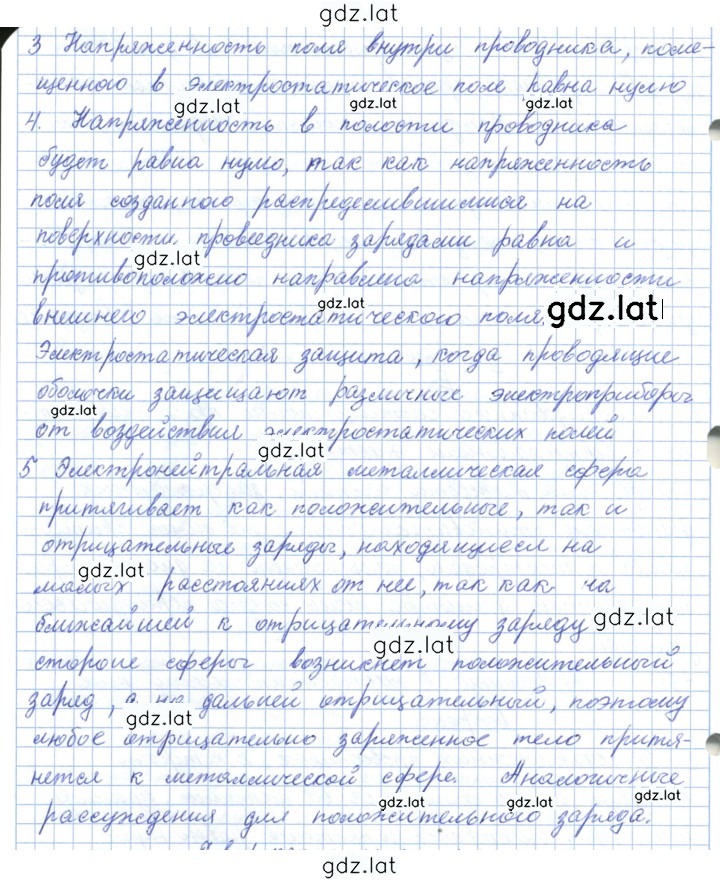 gdz.lat
3 Напряженность поля внутри проводника, поме-
щенного в электростатическое поле равна нулю
gdz.lat gdz.lat gdz.lat
4. Напряженность в полости проводника
будет равна нулю, так как напряженность
поля созданного распределившимися на
поверхности проводника зарядами равна и
gdz.lat
противоположно направлена напряженности
gdz.lat gdz.lat
внешнего электростатического поля.
Электростатическая защита, когда проводящие
оболочки защищают различные электроприборы
gdz.lat
от воздействия электростатических полей
gdz.lat
5 Электронейтральная металлическая сфера
притягивает как положительные, так и
отрицательные заряды, находящиеся на
gdz.lat
малых расстояниях от нее, так как на
ближайшей к отрицательному заряду gdz.lat
gdz.lat
стороне сферы возникнет положительный
заряд, а на дальней отрицательный, поэтому
gdz.lat
любое отрицательно заряженное тело притя-
нется к металлической сфере. Аналогичные
gdz.lat gdz.lat gdz.lat
рассуждения для положительного заряда.
gdz.lat